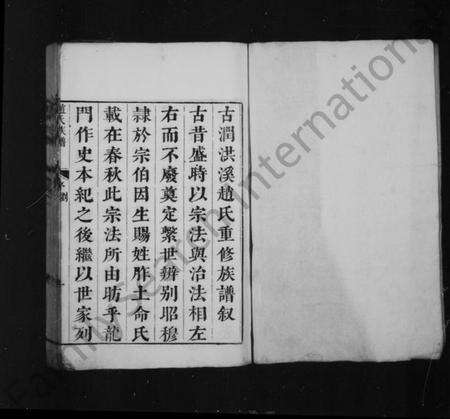 古潤洪溪趙氏重修族譜叙
古昔盛時以宗法與治法相左
右而不廢奠定繫世辨別昭穆
隸於宗伯因生賜姓胙土命氏
載在春秋此宗法所由昉乎龍
門作史本紀之後繼以世家列
趙氏族譜